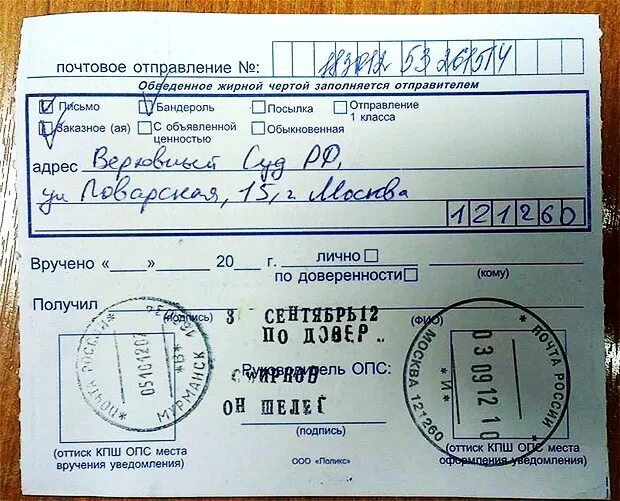 почтовое отправление №: 183012 53 26151 4
Обведенное жирной чертой заполняется отправителем
Письмо Бандероль Посылка Отправление 1 класса
Заказное (ая) С объявленной ценностью Обыкновенная
адрес Верховный Суд РФ,
ул Поварская, 15, г Москва
121260
Вручено «____» ________ 20__ г. лично
по доверенности (кому)
Получил
(подпись) (ФИО)
3 СЕНТЯБРЬ12
ПО ДОВЕР
Руководитель ОПС:
СМИРНОВ
ОН ШЕЛЕГ
(подпись)
ПОЧТА РОССИИ
МУРМАНСК
"В"
ПОЧТА РОССИИ
МОСКВА 121260
"И"
03 09 12 10
(оттиск КПШ ОПС места вручения уведомления)
(оттиск КПШ ОПС места оформления уведомления)
ООО «Поликс»